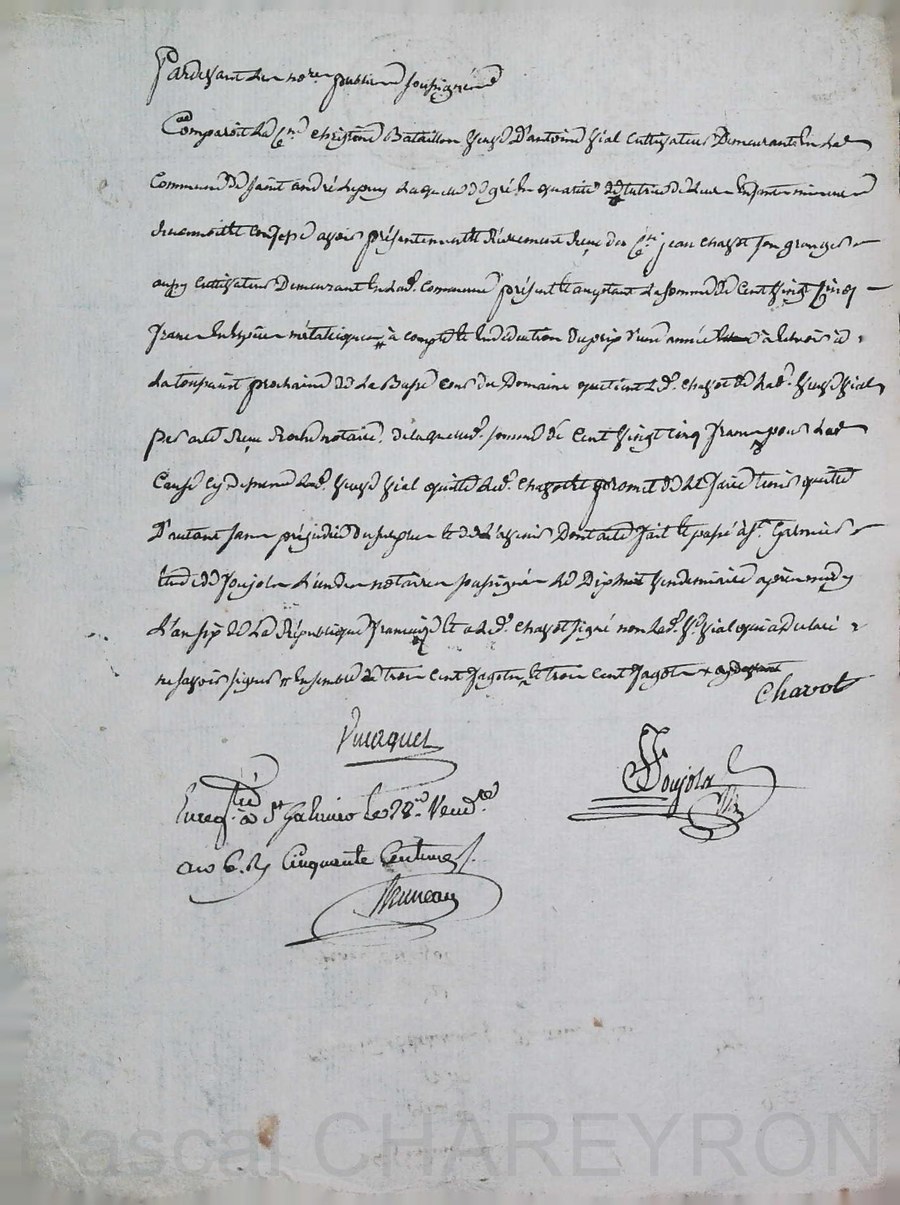 Pardevant les nores publics soussignés
Comparoit la Cne christine Bataillon veuve D'antoine vial cultivateur Demeurante en la
Commune de saint andré lepuy laquelle de gré en qualité de tutrice de leurs enfants mineurs
avoir présentement reçu du Cn jean chavot son granger
aussy cultivateur Demeurant en lad. commune présent et acceptant la somme de Cent vingt Cinq
francs en espèces métalliques à compte et en déduction du prix d'une année à échoir à
la toussaint prochaine de la Basse cour du Domaine que tient led. chavot de lad. veuve vial
par acte reçu notaire, de laquelle somme de Cent vingt Cinq francs pour la
Cause cy dessus lad. veuve vial quitte led. chavot et promet de le faire tenir quitte
D'autant sans préjudice du surplus et de l'avenir Dont acte fait et passé à St. Galmier
étude de Poujola l'un des notaires soussignés le Dix huit vendemiaire après midy
l'an six de la République française et a led. chavot signé non lad. ve. vial qui a déclaré
ne savoir signer Ensemble de trois cent et trois cent
Chavot
Poujola
Enregtré à St Galmier le 28 Vendre
an 6. R cinquante Centimes
Bruneau
Pascal CHAREYRON